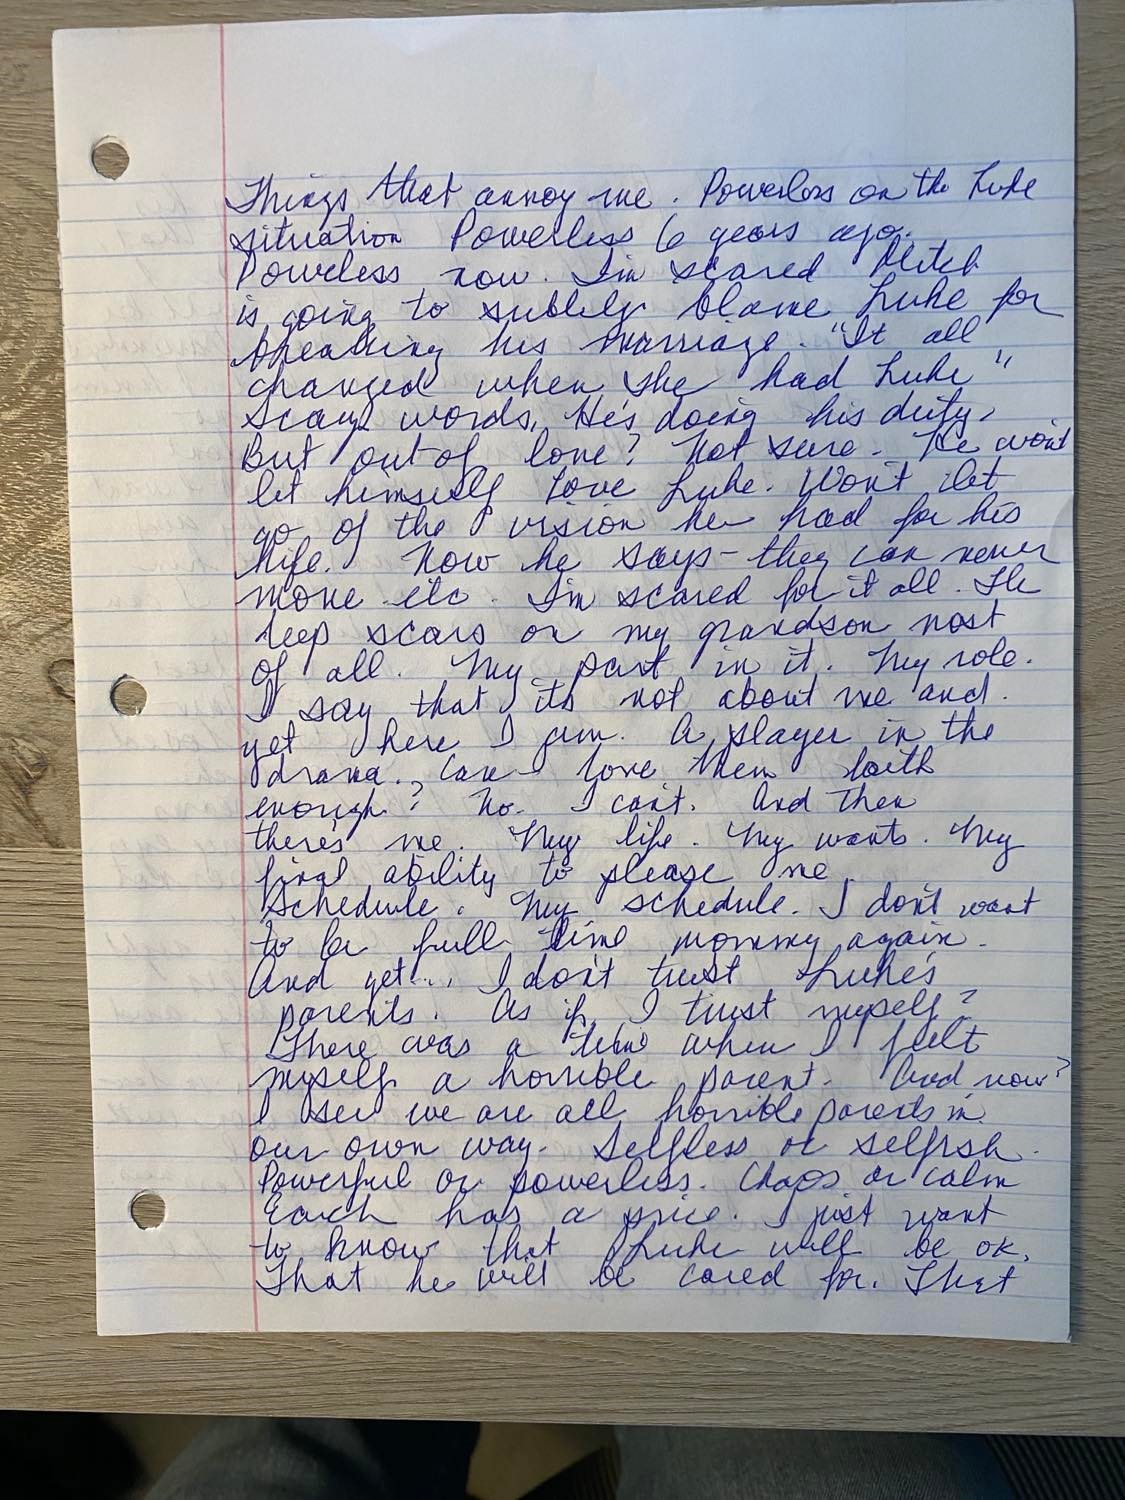 Things that annoy me. Powerless on the Luke
situation Powerless 6 years ago.
Powerless now. I'm scared Mitch
is going to subtely blame Luke for
breaking his marriage. "It all
changed when she had Luke"
Scary words. He's doing his duty,
But out of love? Not sure. He won't
let himself love Luke. Won't let
go of the vision he had for his
life. Now he says - they can never
move etc. I'm scared for it all. The
deep scars on my grandson most
of all. My part in it. My role.
I say that it's not about me and
yet here I am. A player in the
drama. Can I love them both
enough? No. I can't. And then
there's me. My life. My wants. My
final ability to please me.
Schedule. My schedule. I don't want
to be full time mommy again.
And yet... I don't trust Luke's
parents. As if I trust myself?
There was a time when I felt
myself a horrible parent. And now?
I see we are all horrible parents in
our own way. Selfless or selfish.
Powerful or powerless. Chaos or calm
Each has a price. I just want
to know that Luke will be ok.
That he will be cared for. That